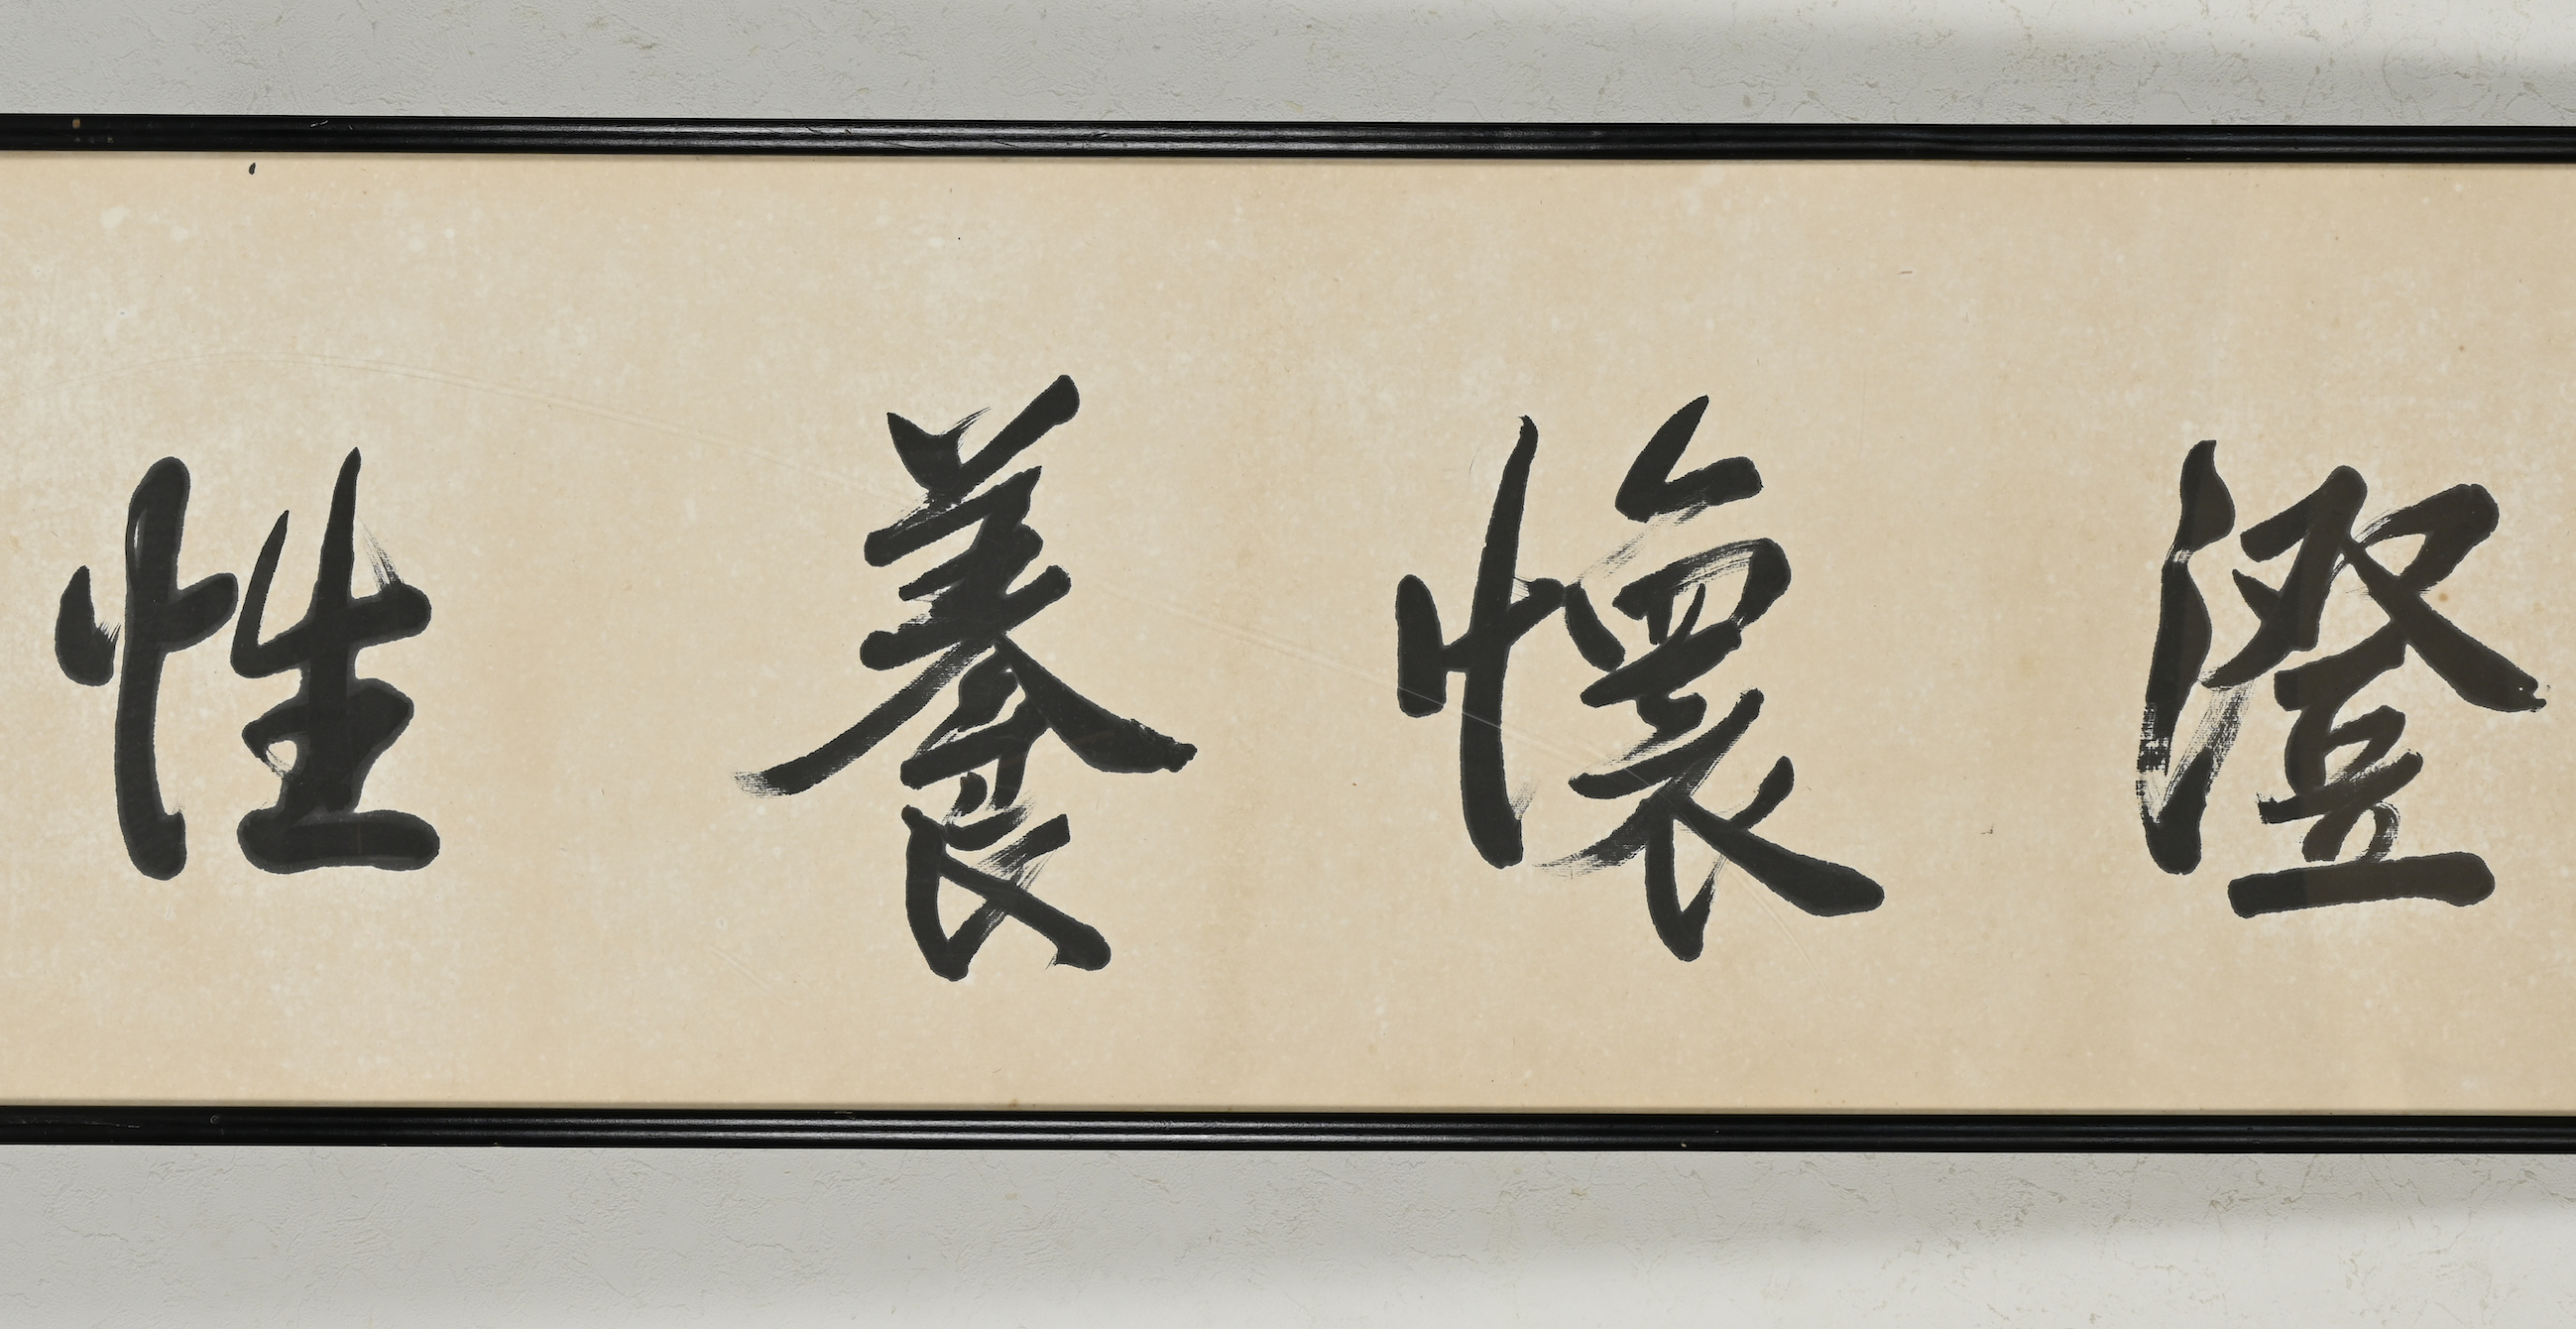 澄懷養性